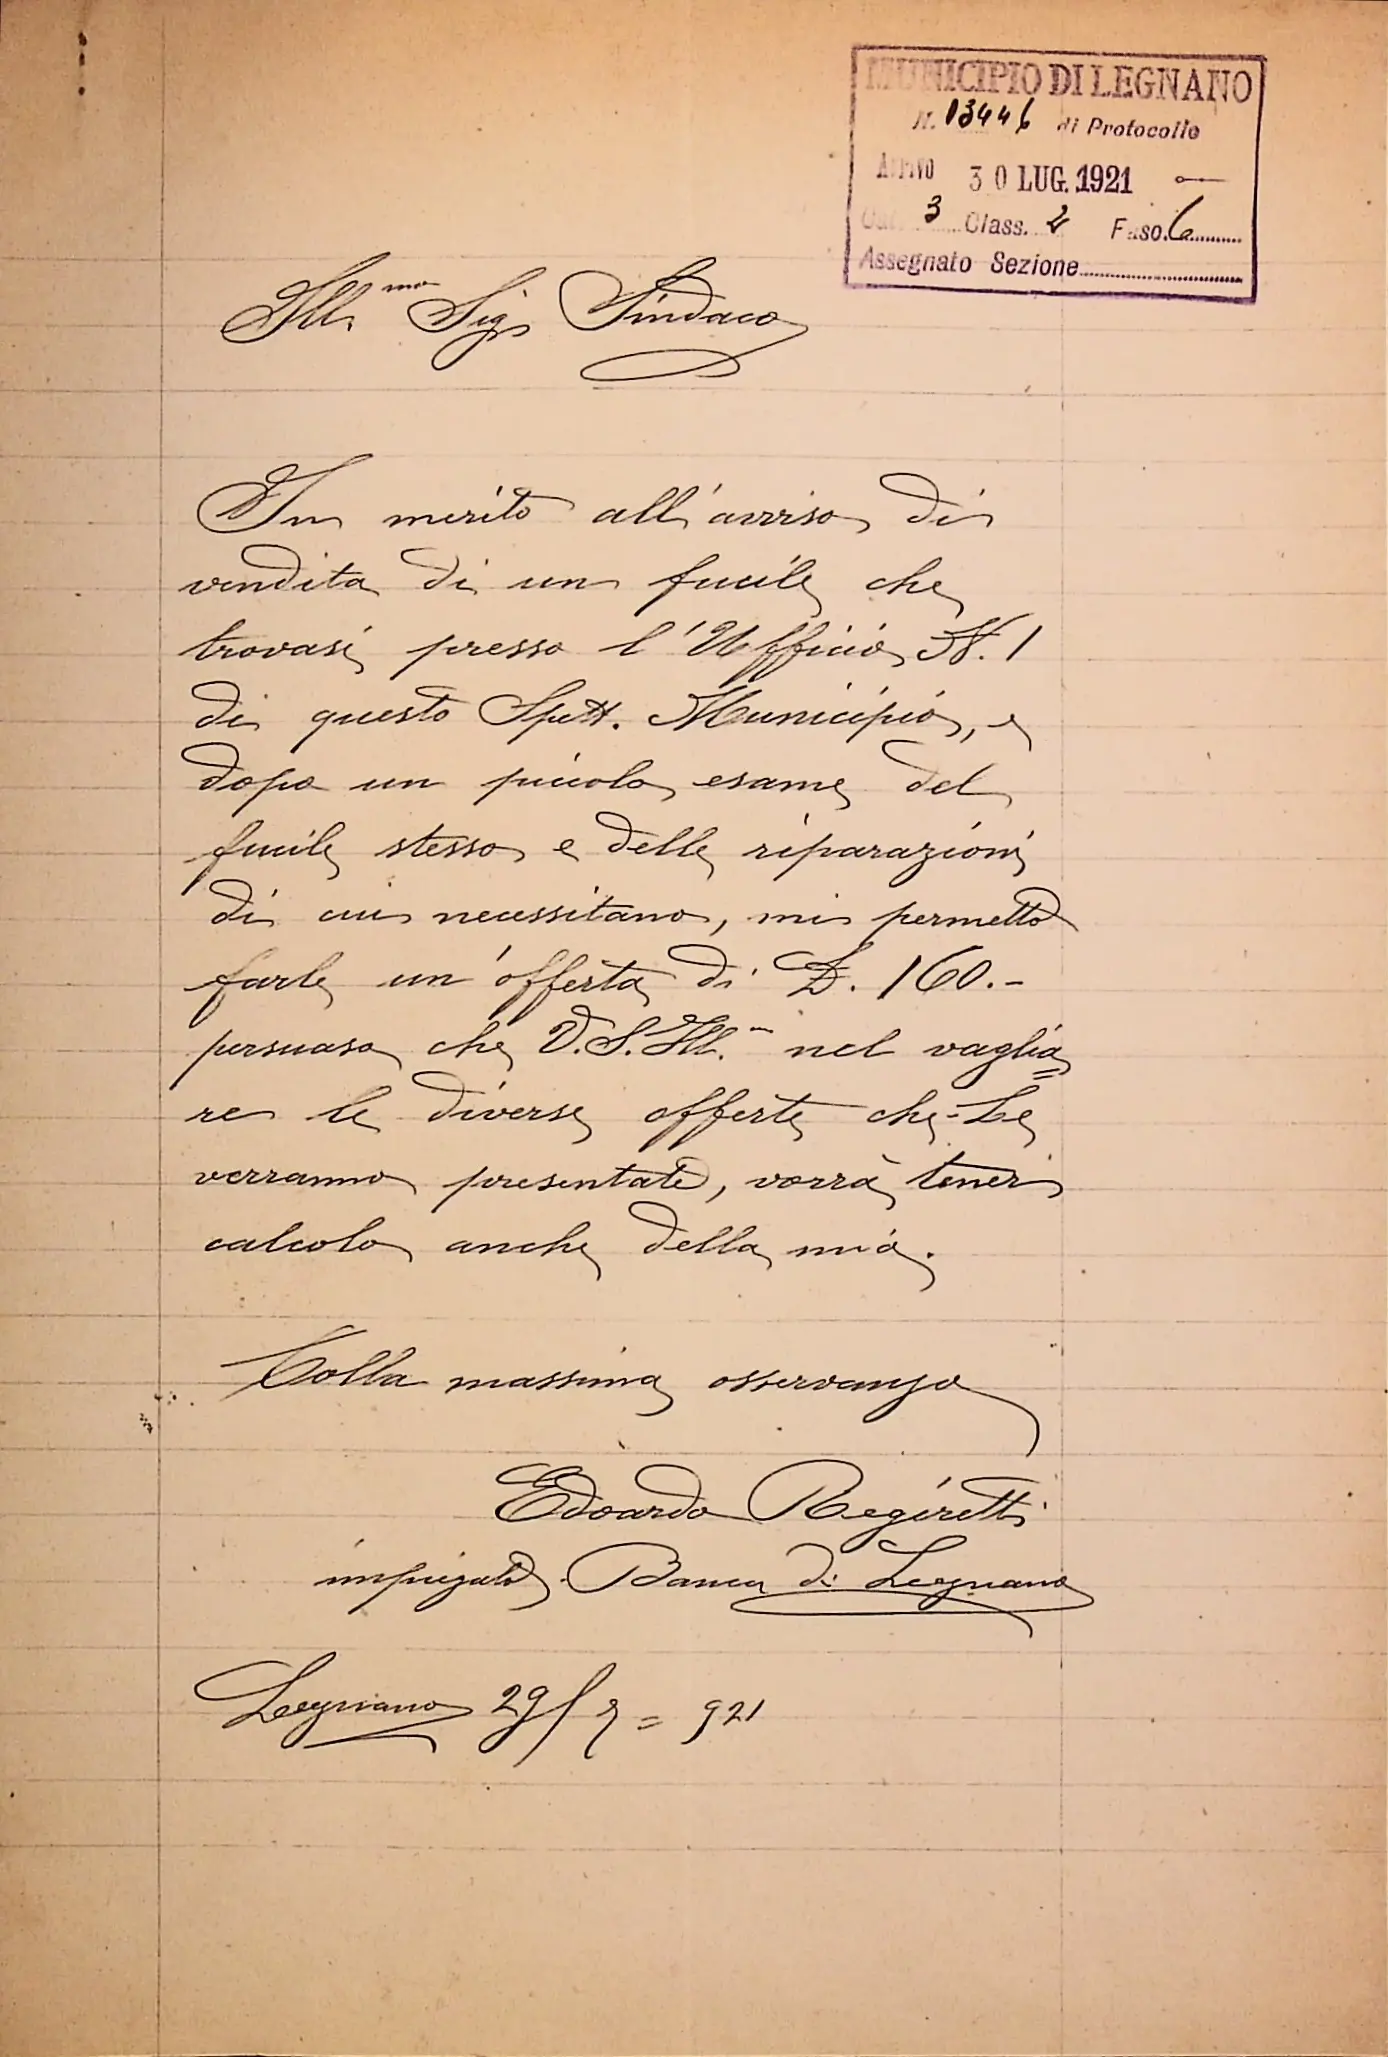 MUNICIPIO DI LEGNANO
N. 13446 di Protocollo
Arrivo 30 LUG. 1921
Cat. 3 Class. 2 Fasc. 6
Assegnato Sezione
Ill.mo Sig. Sindaco
In merito all'avviso di
vendita di un fucile che
trovasi presso l'Ufficio N. 1
di questo Spett. Municipio, e
dopo un piccolo esame del
fucile stesso e delle riparazioni
di cui necessitano, mi permetto
farle un'offerta di L. 160.-
persuaso che V.S. Ill.ma nel vaglia=
re le diverse offerte che Le
verranno presentate, vorrà tener
calcolo anche della mia.
Colla massima osservanza
Edoardo
impiegato Banca di Legnano
Legnano 29/7=921